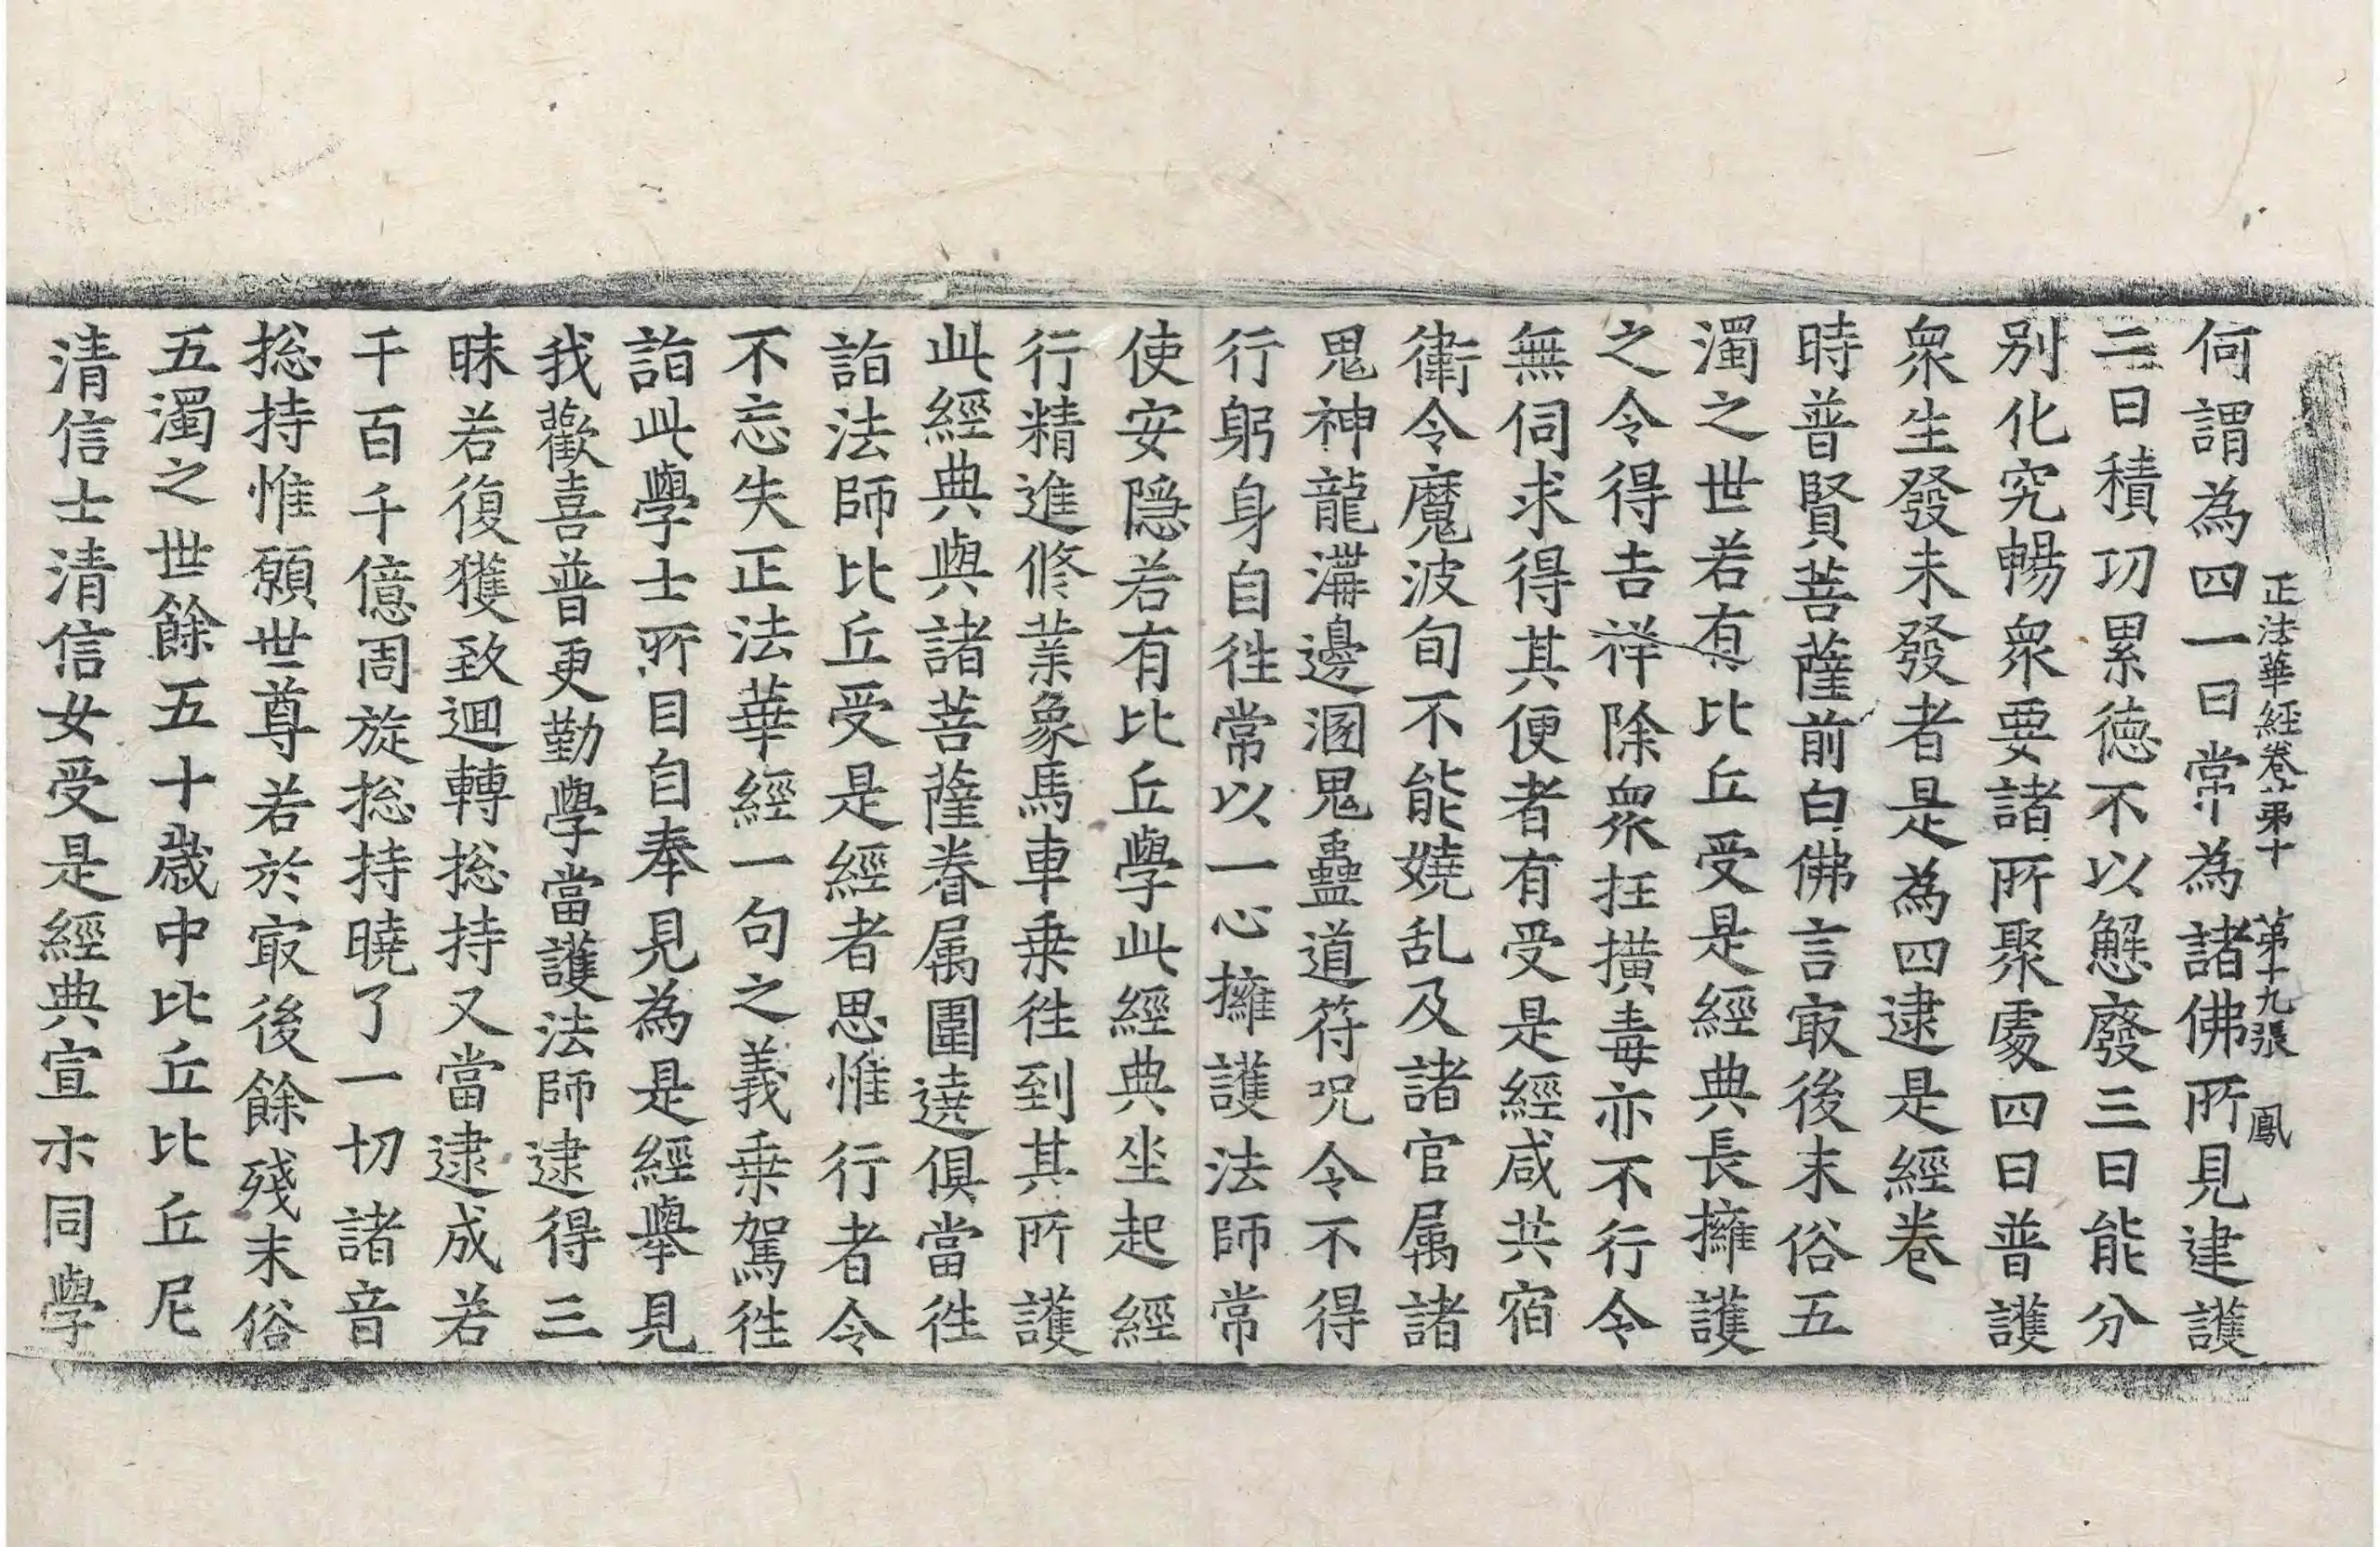 正法華經卷苐十　苐十九張　鳳
何謂為四一曰常為諸佛所見建護
二曰積功累徳不以懈廢三曰能分
别化究暢衆要諸所聚處四曰普護
衆生發未發者是為四逮是經卷
時普賢菩薩前白佛言㝡後末俗五
濁之世若有比丘受是經典長擁護
之令得吉祥除衆抂橫毒亦不行令
無伺求得其便者有受是經咸共宿
衛令魔波旬不能嬈乱及諸官属諸
鬼神龍溝邊溷鬼蠱道符呪令不得
行躬身自徃常以一心擁護法師常
使安隠若有比丘學此經典坐起經
行精進修業象馬車乗徃到其所護
此經典與諸菩薩眷属圍遶俱當徃
詣法師比丘受是經者思惟行者令
不忘失正法華經一句之義乗駕徃
詣此學士所目自奉見為是經舉見
我歡喜普更勤學當護法師逮得三
昧若復獲致迴轉捴持又當逮成若
千百千億周旋捴持曉了一切諸音
捴持惟願世尊若於㝡後餘殘末俗
五濁之世餘五十歲中比丘比丘尼
清信士清信女受是經典宣示同學